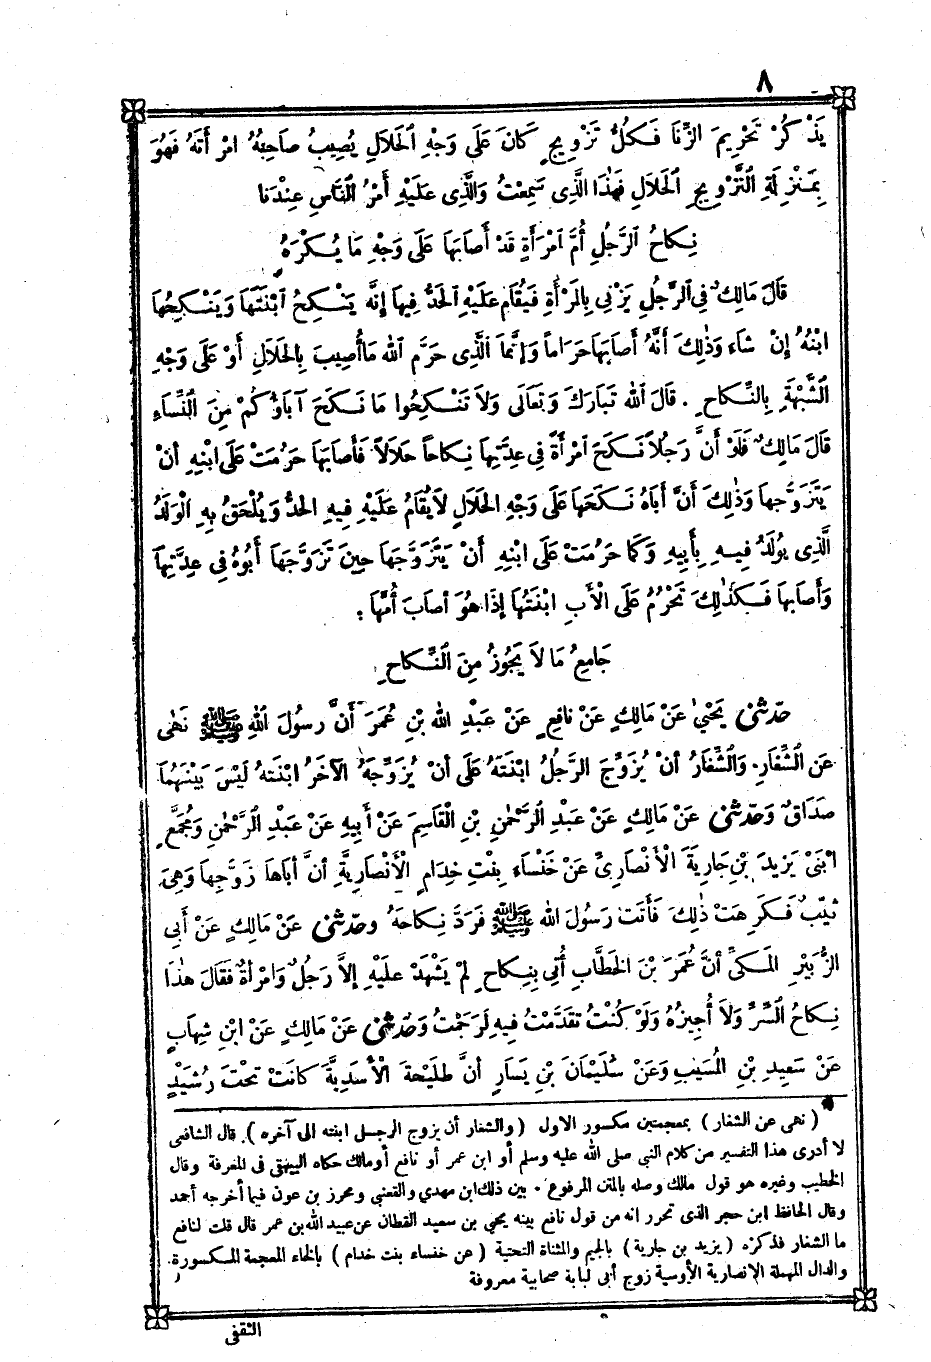 ٨
يَذْكُرْ تَحْرِيمَ الزِّنَا فَكُلُّ تَزْوِيجٍ كَانَ عَلَى وَجْهِ الْحَلَالِ يُصِيبُ صَاحِبُهُ امْرَأَتَهُ فَهُوَ
بِمَنْزِلَةِ التَّزْوِيجِ الْحَلَالِ فَهٰذَا الَّذِى سَمِعْتُ وَالَّذِى عَلَيْهِ أَمْرُ النَّاسِ عِنْدَنَا
نِكَاحُ الرَّجُلِ أُمَّ امْرَأَةٍ قَدْ أَصَابَهَا عَلَى وَجْهِ مَا يُكْرَهُ
قَالَ مَالِكٌ فِى الرَّجُلِ يَزْنِى بِالْمَرْأَةِ فَيُقَامُ عَلَيْهِ الْحَدُّ فِيهَا إِنَّهُ يَنْكِحُ ابْنَتَهَا وَيَنْكِحُهَا
ابْنُهُ إِنْ شَاءَ وَذٰلِكَ أَنَّهُ أَصَابَهَا حَرَاماً وَإِنَّمَا الَّذِى حَرَّمَ اللهُ مَا أُصِيبَ بِالْحَلَالِ أَوْ عَلَى وَجْهِ
الشُّبْهَةِ بِالنِّكَاحِ . قَالَ اللهُ تَبَارَكَ وَتَعَالَى وَلَا تَنْكِحُوا مَا نَكَحَ آبَاؤُكُمْ مِنَ النِّسَاءِ
قَالَ مَالِكٌ فَلَوْ أَنَّ رَجُلاً نَكَحَ امْرَأَةً فِى عِدَّتِهَا نِكَاحاً حَلَالاً فَأَصَابَهَا حَرُمَتْ عَلَى ابْنِهِ أَنْ
يَتَزَوَّجَهَا وَذٰلِكَ أَنَّ أَبَاهُ نَكَحَهَا عَلَى وَجْهِ الْحَلَالِ لَا يُقَامُ عَلَيْهِ فِيهِ الْحَدُّ وَيُلْحَقُ بِهِ الْوَلَدُ
الَّذِى يُولَدُ فِيهِ بِأَبِيهِ وَكَمَا حَرُمَتْ عَلَى ابْنِهِ أَنْ يَتَزَوَّجَهَا حِينَ تَزَوَّجَهَا أَبُوهُ فِى عِدَّتِهَا
وَأَصَابَهَا فَكَذٰلِكَ تَحْرُمُ عَلَى الْأَبِ ابْنَتُهَا إِذَا هُوَ أَصَابَ أُمَّهَا :
جَامِعُ مَا لَا يَجُوزُ مِنَ النِّكَاحِ
حَدَّثَنِى يَحْيَى عَنْ مَالِكٍ عَنْ نَافِعٍ عَنْ عَبْدِ اللهِ بْنِ عُمَرَ أَنَّ رَسُولَ اللهِ ﷺ نَهَى
عَنِ الشِّغَارِ. وَالشِّغَارُ أَنْ يُزَوِّجَ الرَّجُلُ ابْنَتَهُ عَلَى أَنْ يُزَوِّجَهُ الْآخَرُ ابْنَتَهُ لَيْسَ بَيْنَهُمَا
صَدَاقٌ وَحَدَّثَنِى عَنْ مَالِكٍ عَنْ عَبْدِ الرَّحْمٰنِ بْنِ الْقَاسِمِ عَنْ أَبِيهِ عَنْ عَبْدِ الرَّحْمٰنِ وَمُجَمِّعٍ
ابْنَىْ يَزِيدَ بْنِ جَارِيَةَ الْأَنْصَارِىِّ عَنْ خَنْسَاءَ بِنْتِ خِدَامٍ الْأَنْصَارِيَّةِ أَنَّ أَبَاهَا زَوَّجَهَا وَهِىَ
ثَيِّبٌ فَكَرِهَتْ ذٰلِكَ فَأَتَتْ رَسُولَ اللهِ ﷺ فَرَدَّ نِكَاحَهُ وَحَدَّثَنِى عَنْ مَالِكٍ عَنْ أَبِى
الزُّبَيْرِ الْمَكِّىِّ أَنَّ عُمَرَ بْنَ الْخَطَّابِ أُتِىَ بِنِكَاحٍ لَمْ يَشْهَدْ عَلَيْهِ إِلَّا رَجُلٌ وَامْرَأَةٌ فَقَالَ هٰذَا
نِكَاحُ السِّرِّ وَلَا أُجِيزُهُ وَلَوْ كُنْتُ تَقَدَّمْتُ فِيهِ لَرَجَمْتُ وَحَدَّثَنِى عَنْ مَالِكٍ عَنِ ابْنِ شِهَابٍ
عَنْ سَعِيدِ بْنِ الْمُسَيِّبِ وَعَنْ سُلَيْمَانَ بْنِ يَسَارٍ أَنَّ طُلَيْحَةَ الْأَسَدِيَّةَ كَانَتْ تَحْتَ رُشَيْدٍ
( نهى عن الشغار ) بمعجمتين مكسور الاول ( والشغار أن يزوج الرجل ابنته الى آخره ). قال الشافعى
لا أدرى هذا التفسير من كلام النبى صلى الله عليه وسلم أو ابن عمر أو نافع أو مالك حكاه البيهقى فى المعرفة وقال
الخطيب وغيره هو قول مالك وصله بالمتن المرفوع . بين ذلك ابن مهدي والقعنبى ومحرز بن عون فيما أخرجه أحمد
وقال الحافظ ابن حجر الذى تحرر انه من قول نافع بينه يحيى بن سعيد القطان عن عبيد الله بن عمر قال قلت لنافع
ما الشغار فذكره ( يزيد بن جارية ) بالجيم والمثناة التحتية ( عن خنساء بنت خدام ) بالخاء المعجمة المكسورة
والدال المهملة الانصارية الأوسية زوج أبى لبابة صحابية معروفة
الثقفى